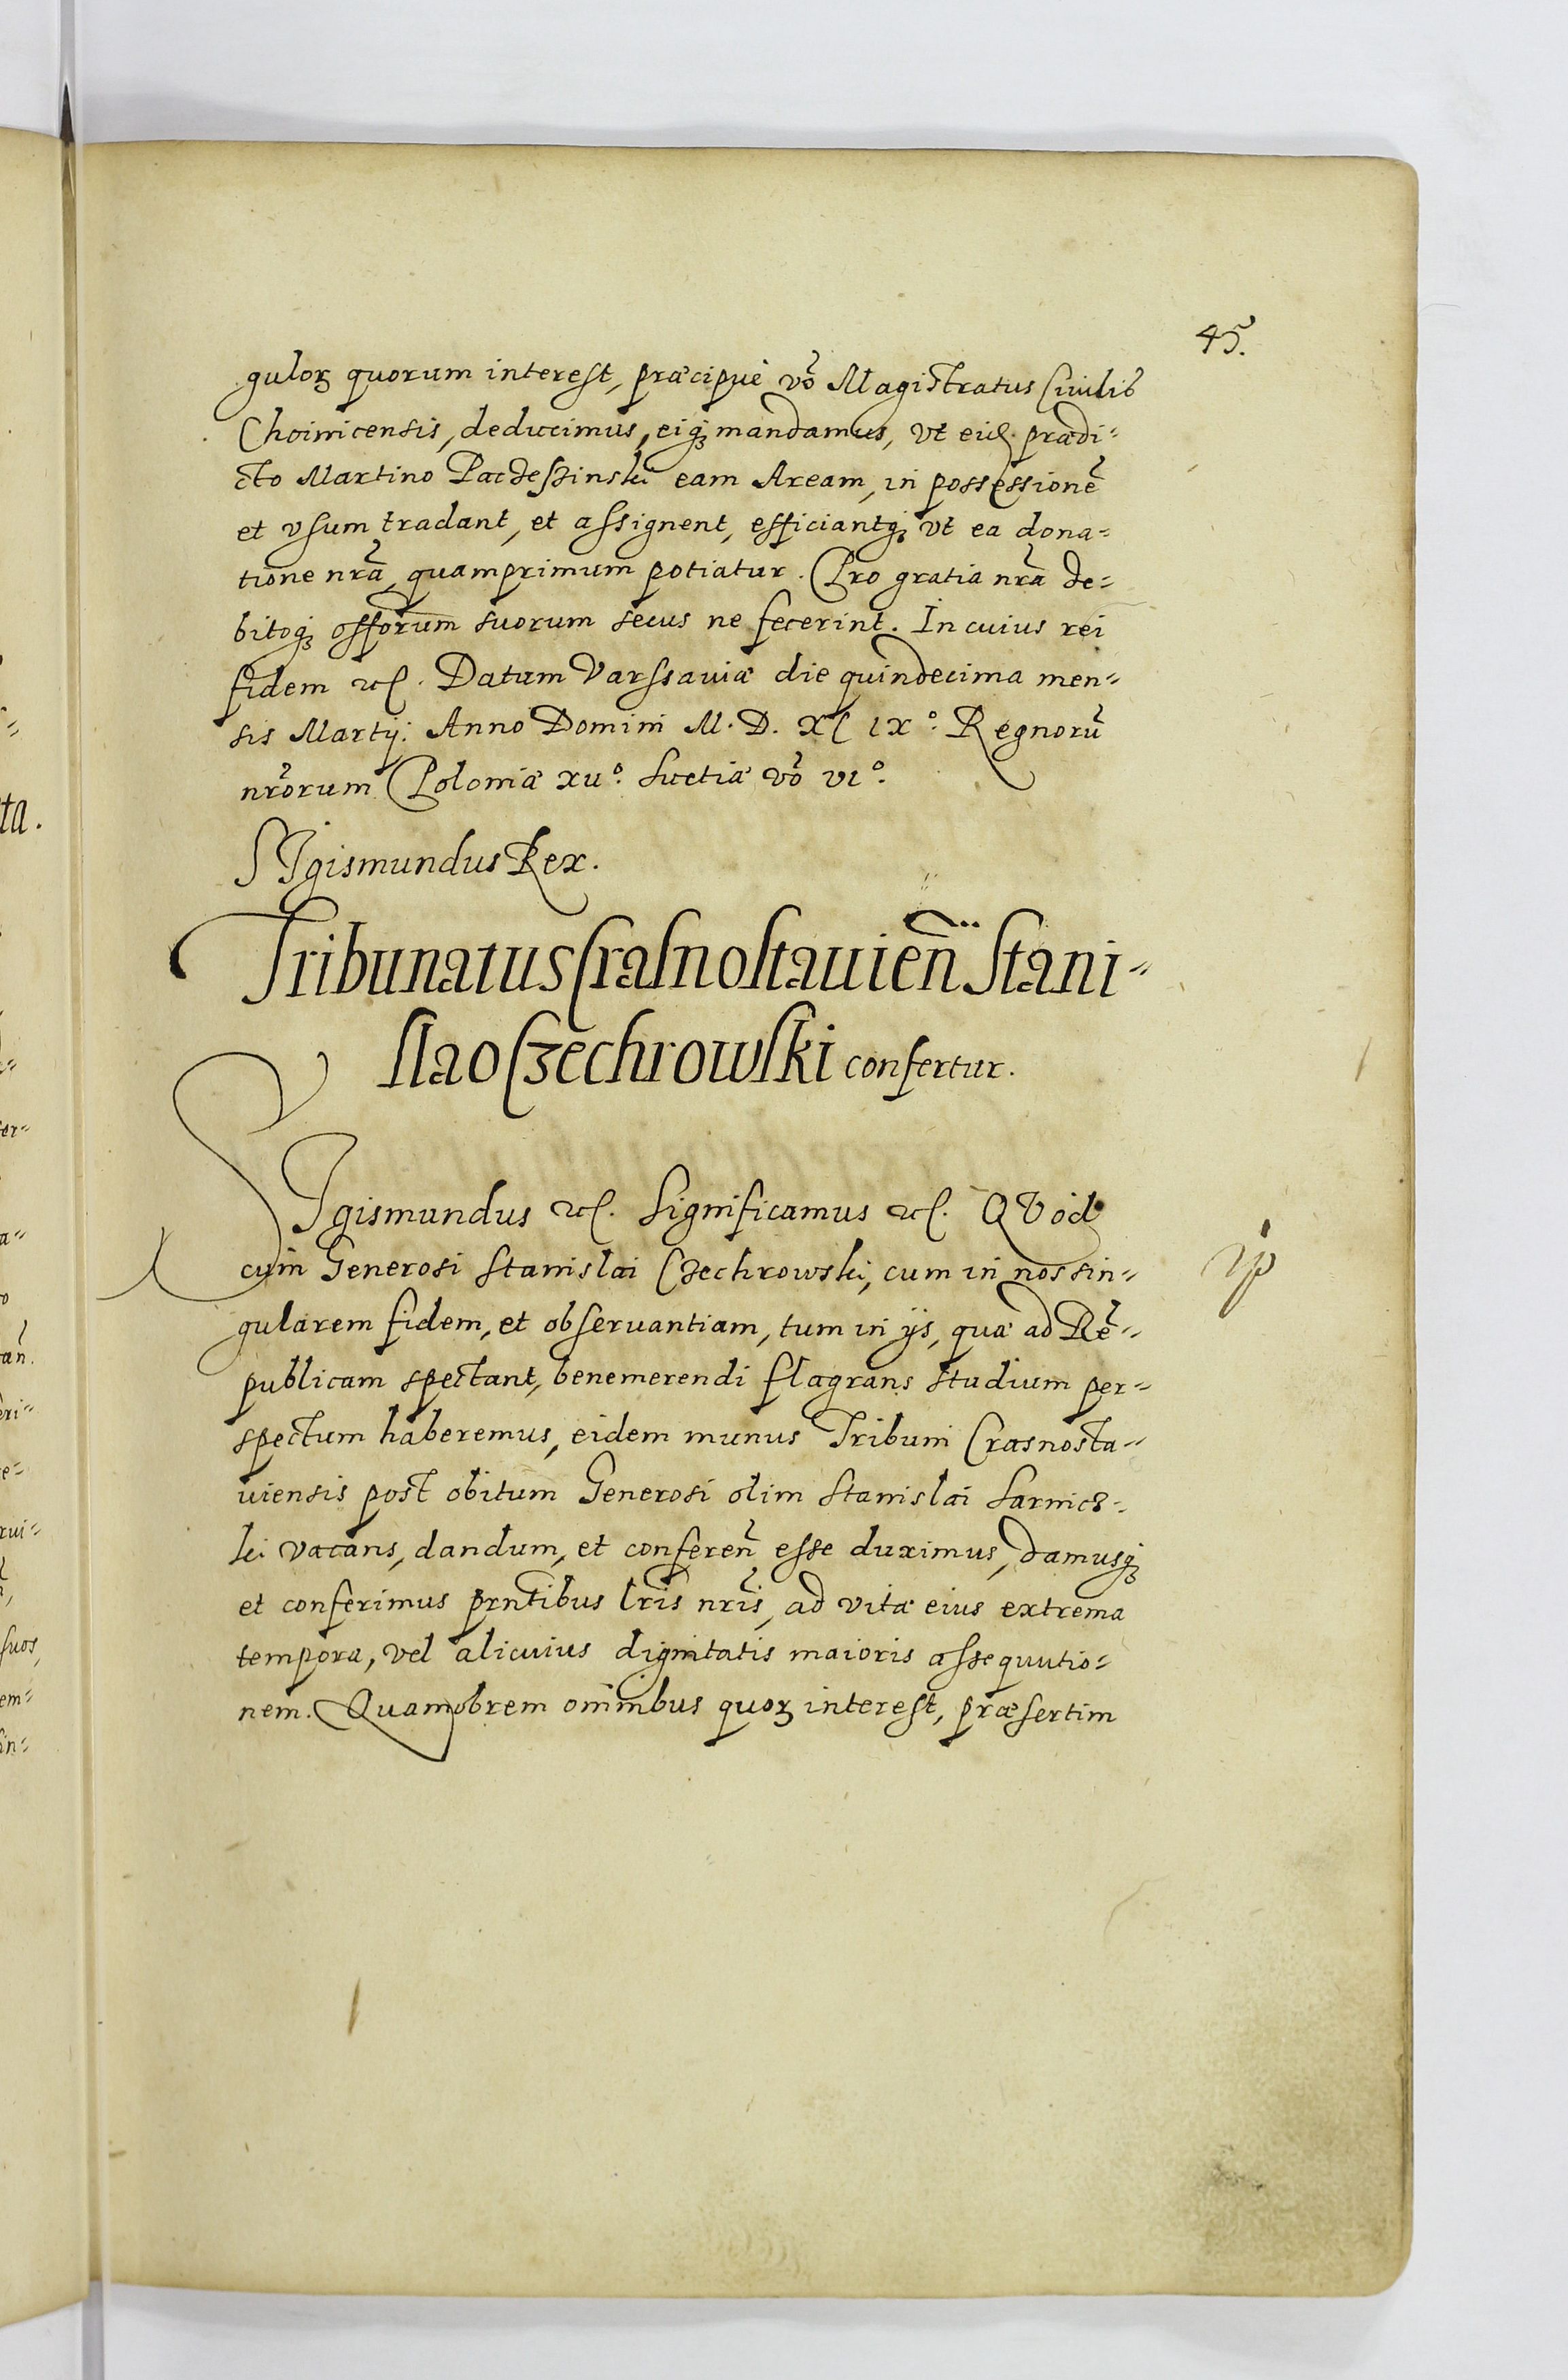 45.
guloꝝ quorum interest, præcipuè võ Magistratus Ciuilis
Choinicensis, deducimus, eiqꝫ mandamus, vt eid. prædi=
cto Martino Paceszinski eam Aream, in possessionẽ
et vsum tradant, et assignent, efficiantqꝫ vt ea dona=
tione nrã quamprimum potiatur. Pro gratia nrã de=
bitoqꝫ offõrum suorum secus ne fecerint. In cuius rei
fidem etc. Datum Varssauiæ die quindecima men=
sis Martij. Anno Domini M. D. XC IX°. Regnorũ
nrõrum Poloniæ xii°. Suetiæ võ vi°.
SIgismundus Rex.
Tribunatus Crasnostauień Stani=
slao Czechrowski confertur.
SIgismundus etc. Significamus etc. QVod
cum Generosi Stanislai Czechrowski, cum in nos sin=
gularem fidem, et obseruantiam, tum in ijs, quæ ad Rẽ=
publicam spectant, benemerendi flagrans studium per=
spectum haberemus, eidem munus Tribuni Crasnosta=
uiensis post obitum Generosi olim Stanislai Sarnicz=
ki vacans, dandum, et conferen̄ esse duximus, damusqꝫ
et conferimus prñtibus lrĩs nrĩs, ad vitæ eius extrema
tempora, vel alicuius dignitatis maioris assequutio=
nem. Quamobrem omnibus quoꝝ interest, præsertim